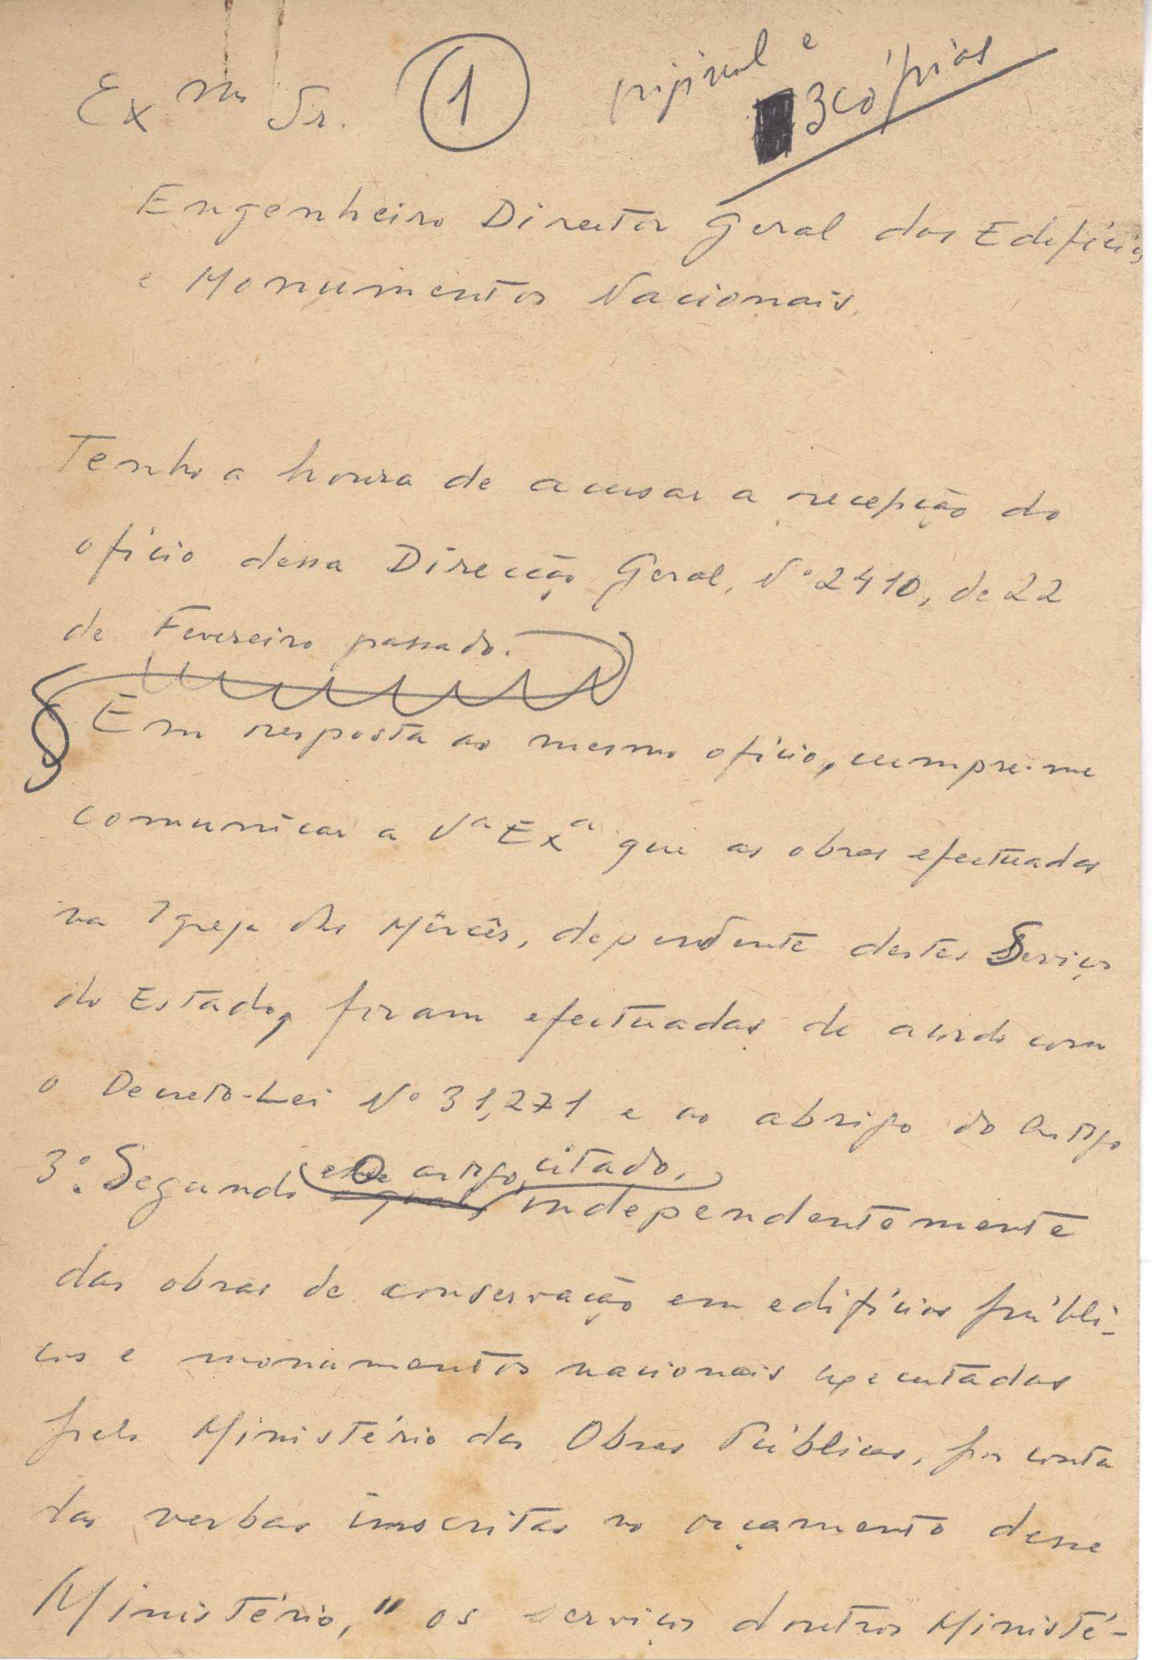 Exmo Sr. 1 original e
3 cópias
Engenheiro Director Geral dos Edifícios
e Monumentos Nacionais.
Tenho a honra de acusar a recepção do
ofício dessa Direcção Geral, Nº 2410, de 22
de Fevereiro passado.
Em resposta ao mesmo ofício, cumpre-me
comunicar a Vª Exª que as obras efectuadas
na Igreja das Mercês, dependente destes Serviços
do Estado, foram efectuadas de acordo com
o Decreto-Lei Nº 31,271 e ao abrigo do Artigo
3º. Segundo esse artigo, citado,
independentemente
das obras de conservação em edifícios públi-
cos e monumentos nacionais executadas
pelo Ministério das Obras Públicas, por conta
das verbas inscritas no orçamento desse
Ministério," os serviços doutros Ministé-